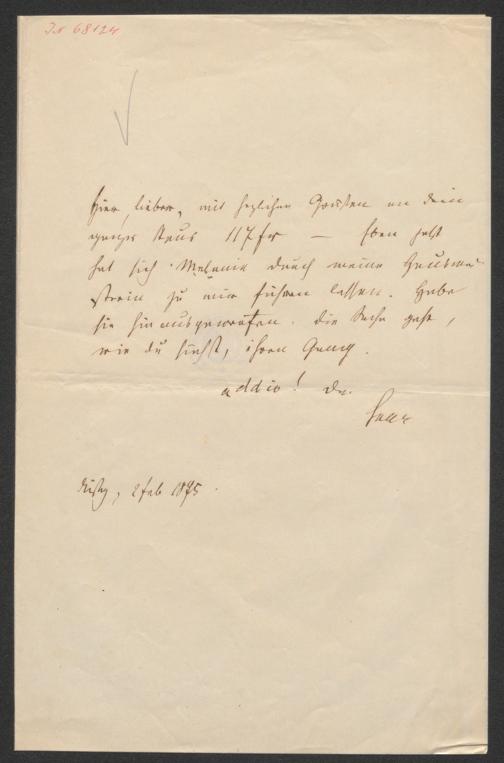 IN 68124
Hier, lieber, mit herzlichen Grüßen an dein
ganzes Haus 117 fr — Eben jetzt
hat sich Melanie durch meine Hausmei-
sterin zu mir führen lassen. Habe
sie hinausgeworfen. Die Sache geht,
wie du siehst, ihren Gang.
addio! Dr.
2 Feb 1875.